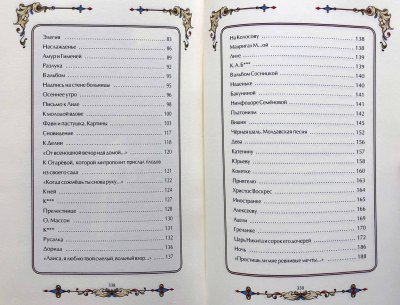 Элегия 83
Наслажденье 86
Амур и Гименей 89
Разлука 92
В альбом 95
Надпись на стене больницы 95
Осеннее утро 96
Письмо к Лиде 98
К молодой вдове 100
Фавн и пастушка. Картины 103
Сновидение 117
К Делии 117
«От всенощной вечор идя домой...» 120
К Огарёвой, которой митрополит прислал плодов
из своего сада 121
«Когда сожмёшь ты снова руку...» 122
К ней 124
К*** 127
Прелестнице 128
О. Массон 130
К*** 131
Русалка 132
Дорида 136
«Лаиса, я люблю твой смелый, вольный взор...» 137
338
На Колосову 138
Мадригал М...ой 138
Лиле 139
К. А. Б*** 139
В альбом Сосницкой 140
Наденьке 141
Бакуниной 142
Нимфодоре Семёновой 142
Платонизм 143
Вишня 145
Чёрная шаль. Молдавская песня 151
Дева 155
Катенину 156
Юрьеву 158
Кокетке 160
Приятелю 163
Христос Воскрес 164
Иностранке 165
Алексееву 166
Адели 169
Гречанке 170
Царь Никита и сорок его дочерей 172
Ночь 186
«Простишь ли мне ревнивые мечты...» 188
339